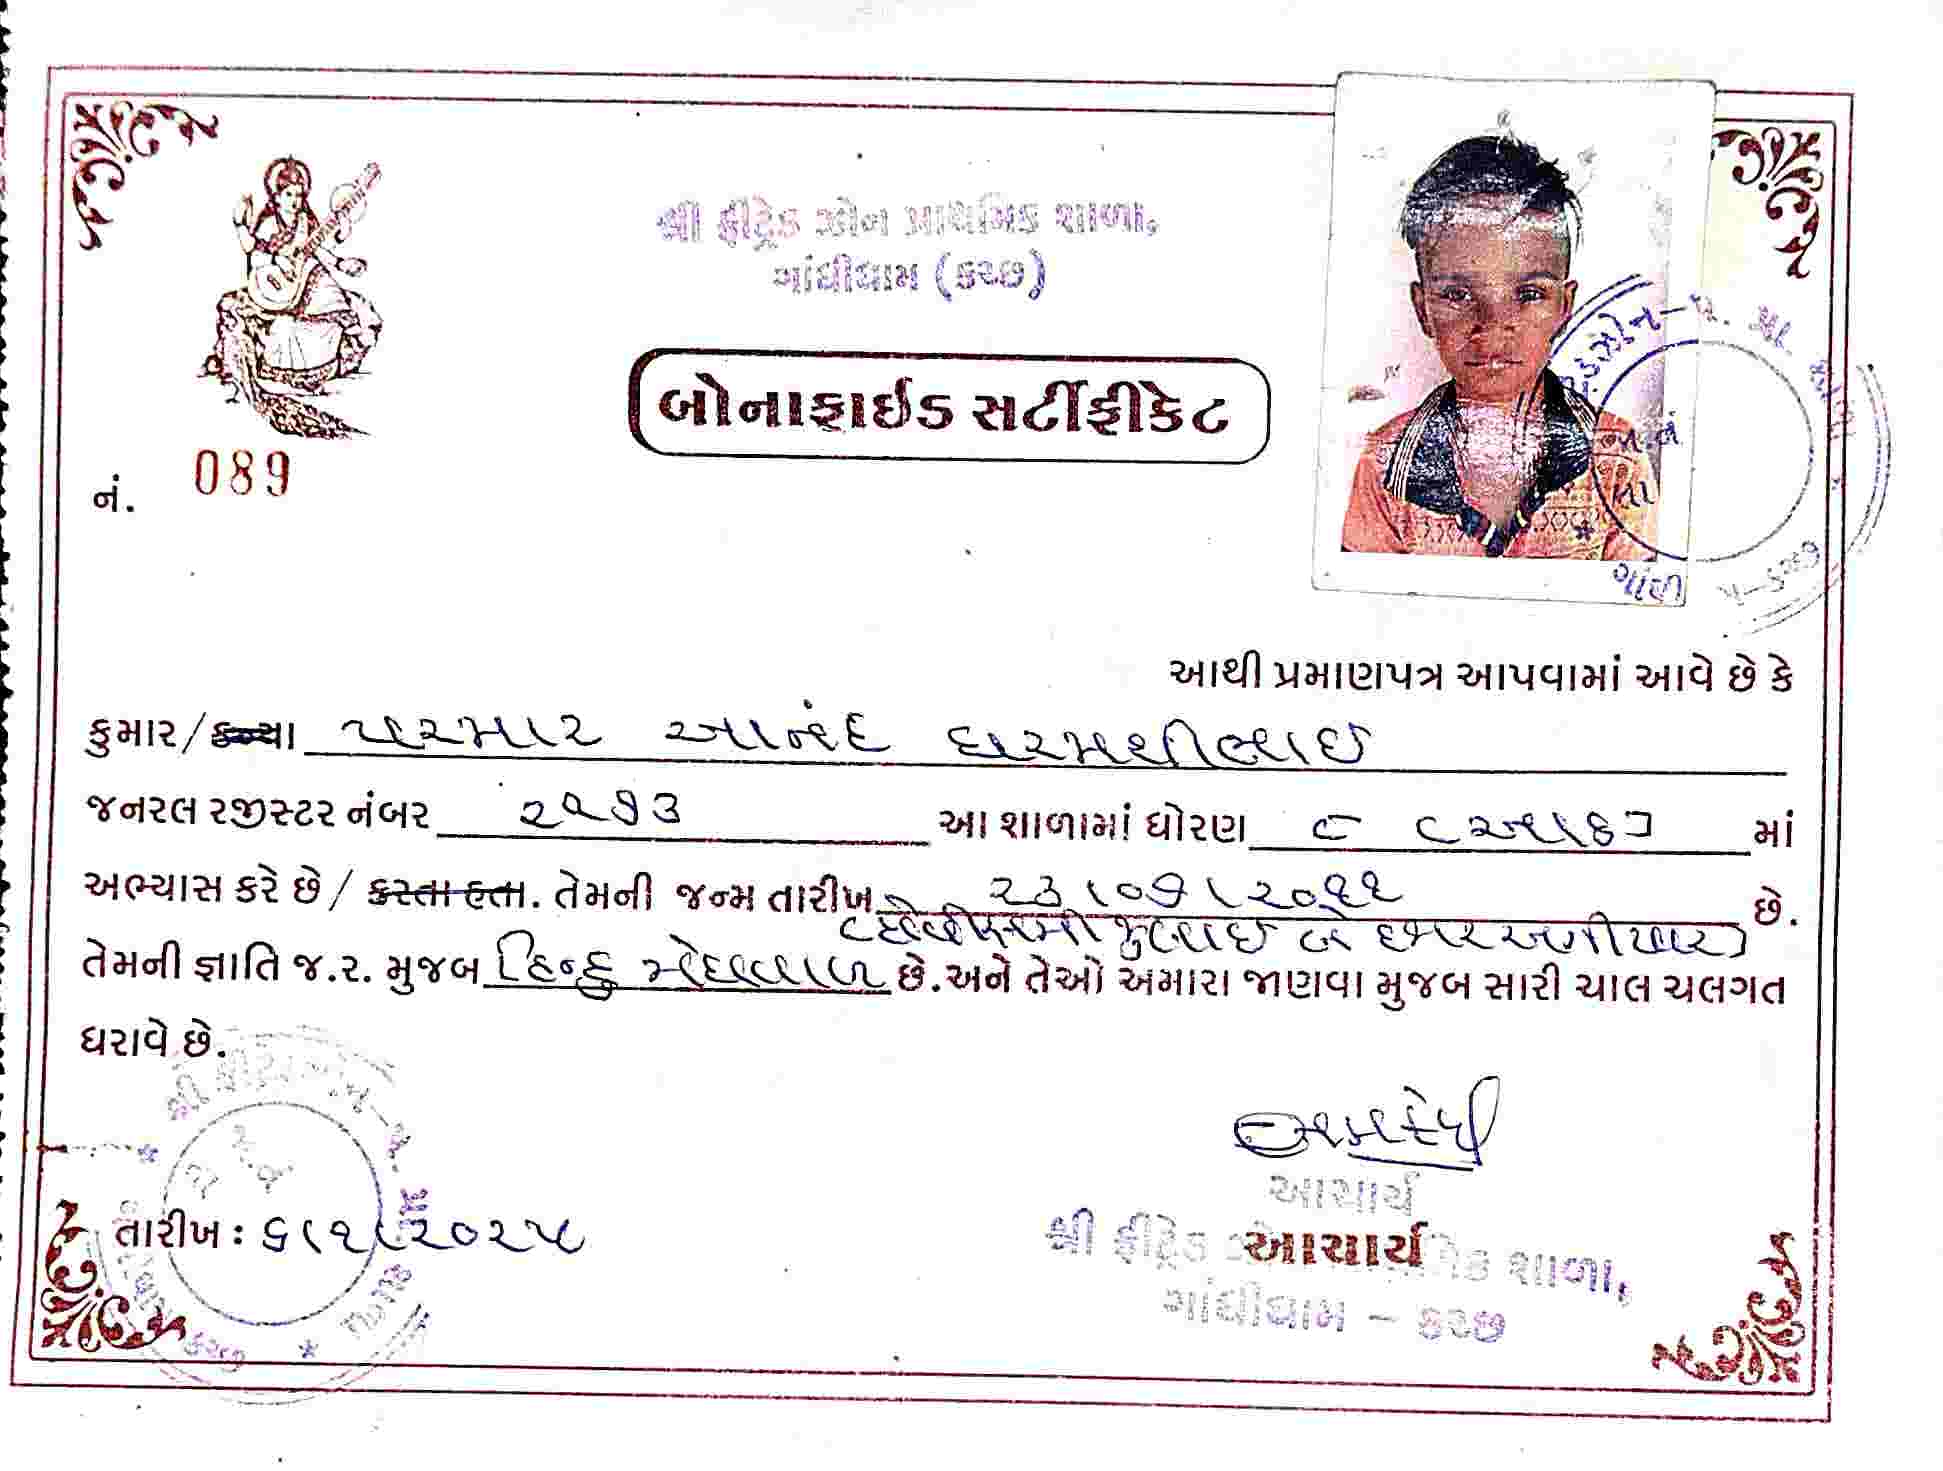 શ્રી ફ્રીટ્રેડ ઝોન પ્રાથમિક શાળા,
ગાંધીધામ (કચ્છ)
બોનાફાઈડ સર્ટીફીકેટ
નં. 089
આથી પ્રમાણપત્ર આપવામાં આવે છે કે
કુમાર/કન્યા પરમાર આનંદ ધરમશીભાઈ
જનરલ રજીસ્ટર નંબર ૨૧૭૩ આ શાળામાં ધોરણ ૮ (આઠ) માં
અભ્યાસ કરે છે/ કરતા હતા. તેમની જન્મ તારીખ ૨૩/૦૭/૨૦૧૧ છે.
(ત્રેવીસમી જુલાઈ બે હજાર અગીયાર)
તેમની જ્ઞાતિ જ.ર. મુજબ હિન્દુ મેઘવાળ છે.અને તેઓ અમારા જાણવા મુજબ સારી ચાલ ચલગત
ધરાવે છે.
તારીખ: ૬/૧/૨૦૨૫
આચાર્ય
આચાર્ય
શ્રી ફ્રીટ્રેડ શાળા,
ગાંધીધામ - કચ્છ